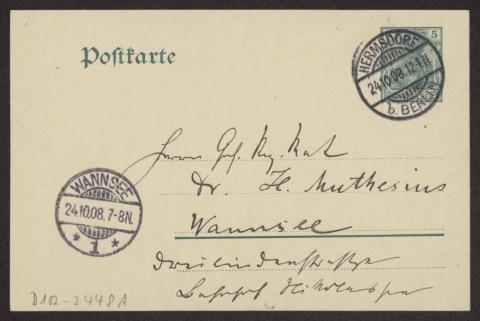 Postkarte
5
HERMSDORF
24.10.08.12-1N.
b. BERLIN
Herrn Geh. Reg. Rat
Dr. H. Muthesius
Wannsee
WANNSEE
24.10.08.7-8N.
* 1 *
Dreilindenstraße
Bahnhof Nikolassee
D102-2448A